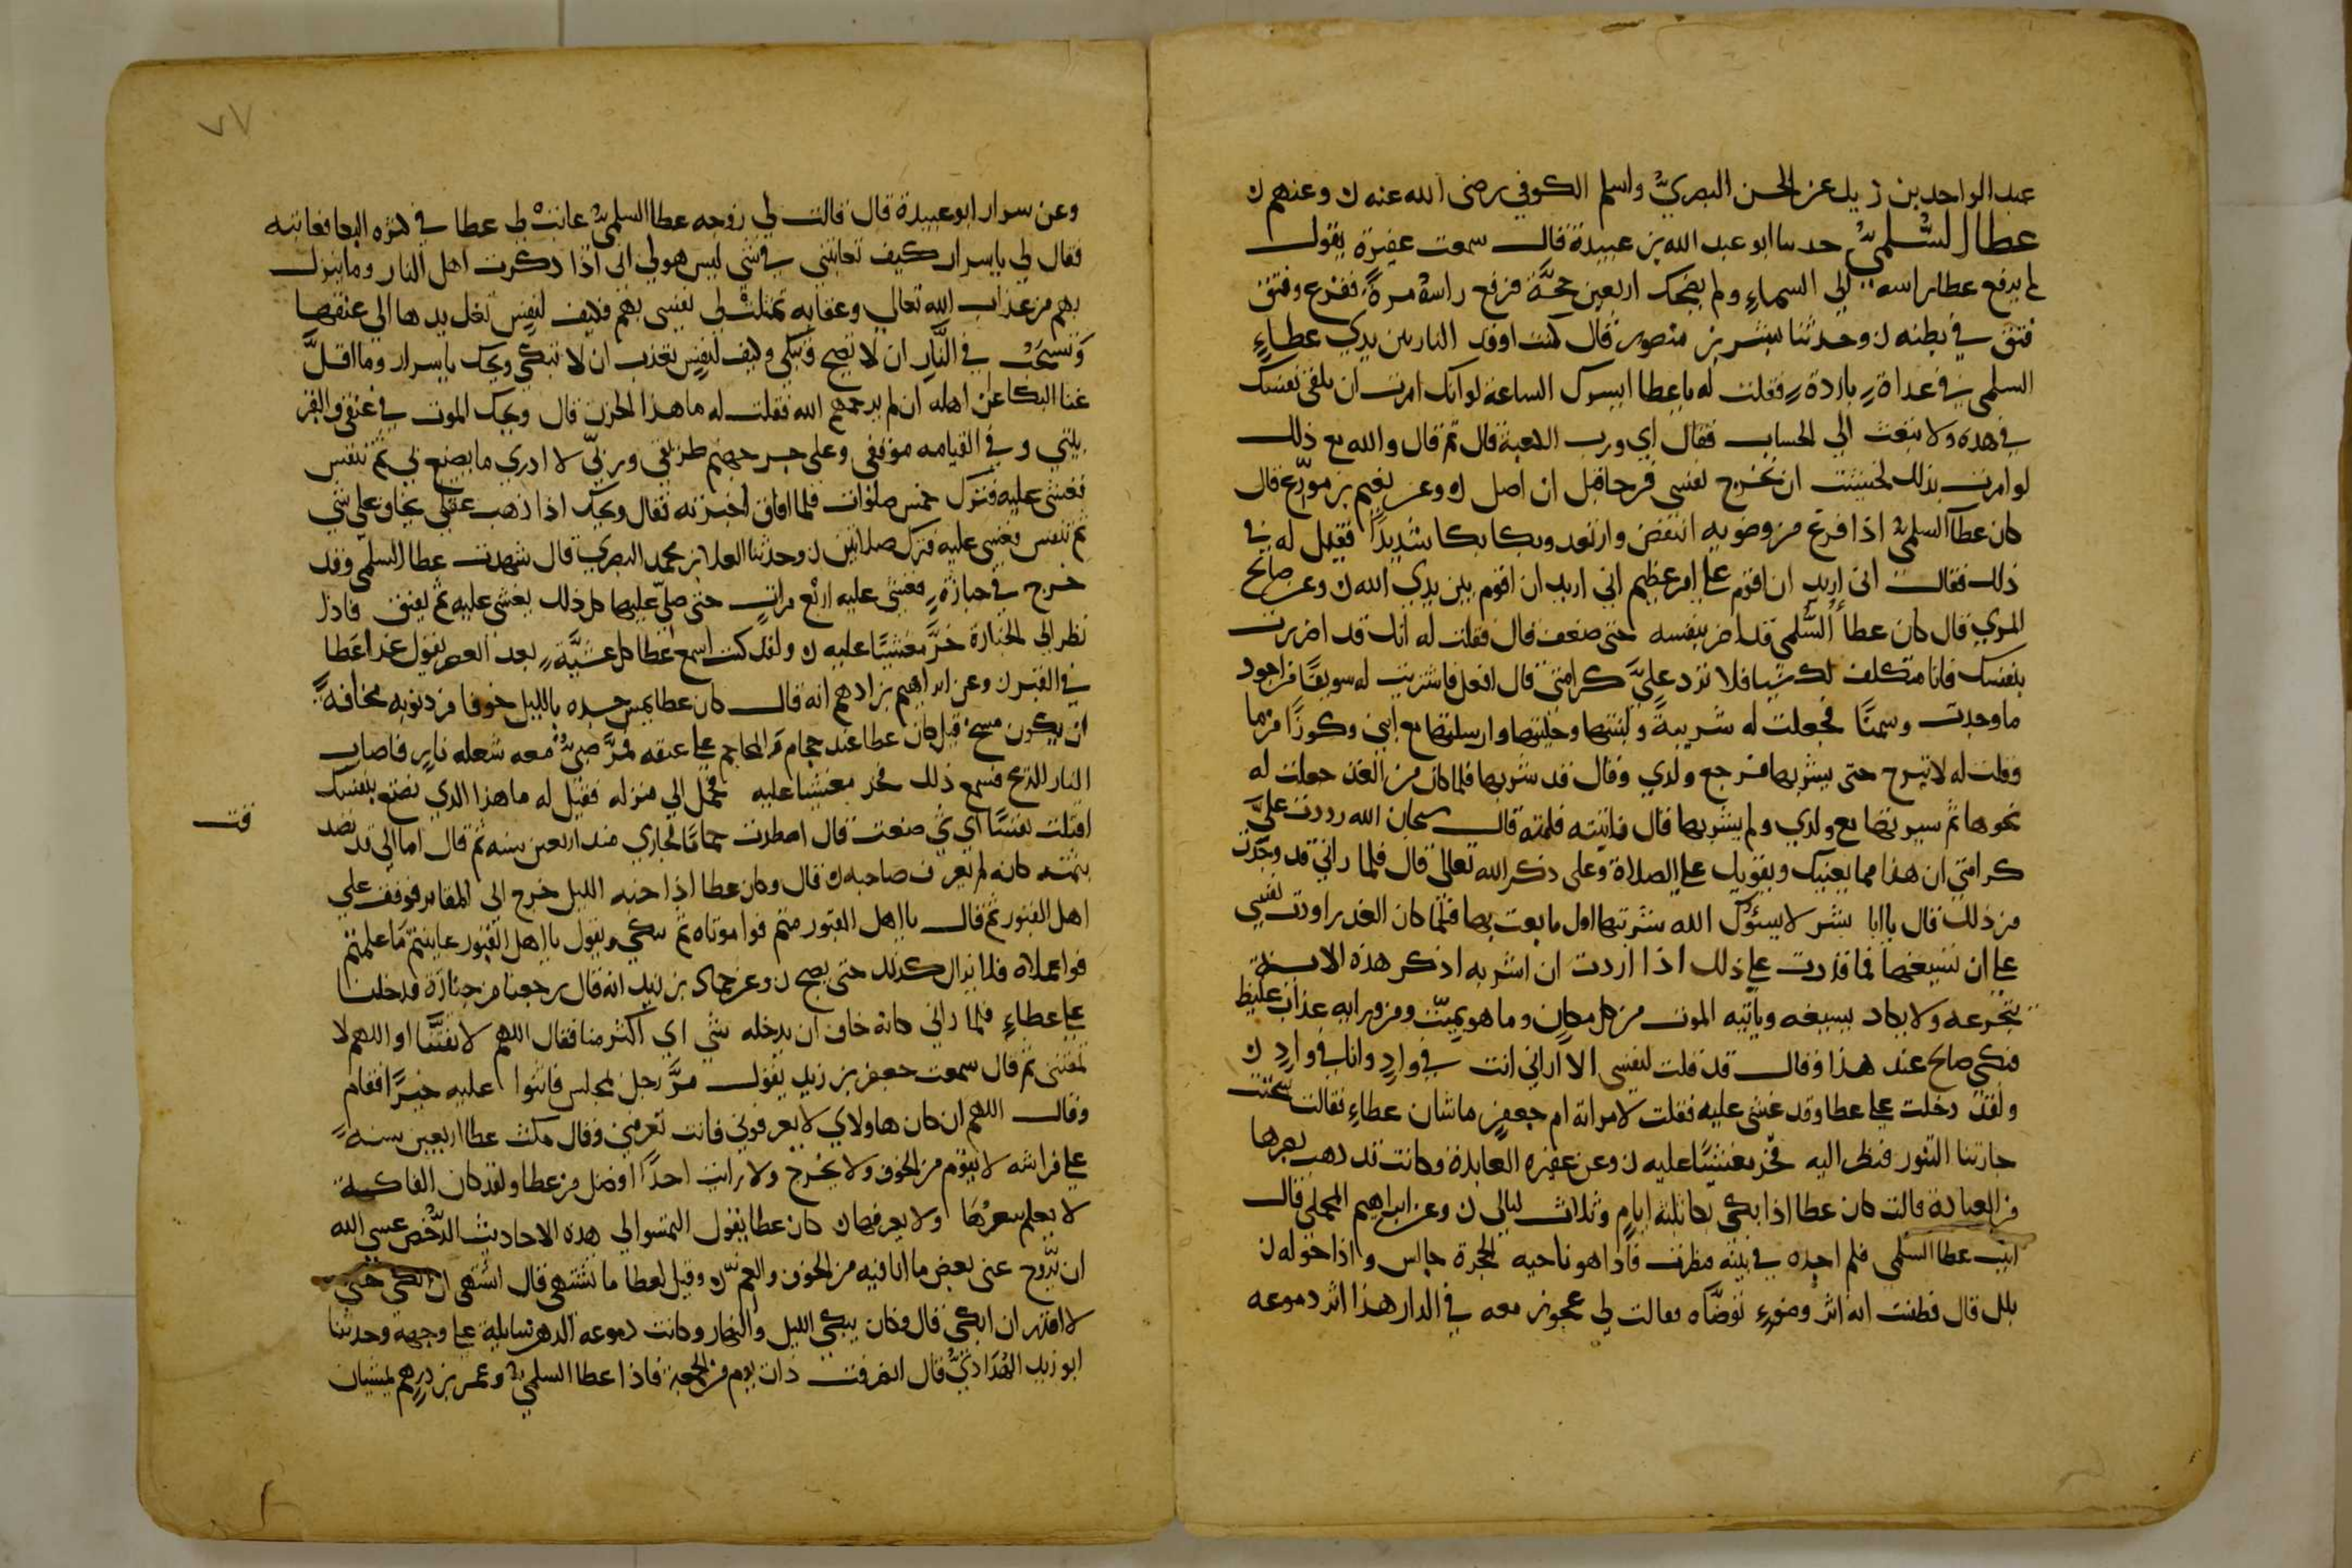 عبد الواحد بن زيد عن الحسن البصري واسلم الكوفي رضي الله عنه ن وعنهم ن
عطا السلمي حدثنا ابو عبد الله بن عبيدة قال سمعت عفيرة يقول
لم يرفع عطا راسه الي السماء ولم يضحك اربعين حجة فرفع راسه مرة ففزع وفتق
فتق في بطنه ن وحدثنا بشر بن منصور قال كنت اوقد النار بين يدي عطاء
السلمي في غداة باردة فقلت له يا عطا ايسرك الساعة لو انك امرت ان تلقي نفسك
في هذه ولا تبعث الي الحساب فقال اي ورب الكعبة قال ثم قال والله مع ذلك
لو امرت بذلك لخشيت ان تخرج نفسي فرحا قبل ان اصل ن وعن نعيم بن مورع قال
كان عطا السلمي اذا فرغ من وضويه انتفض وارتعد وبكا بكا شديدا فقيل له في
ذلك فقال اني اريد ان اقدم علي امر عظيم اني اريد ان اقوم بين يدي الله ن وعن صالح
المري قال كان عطا السلمي قد اضر بنفسه حتي ضعف قال فقلت له انك قد اضررت
بنفسك فانا متكلف لك شيا فلا ترد علي كرامتي قال افعل فاشتريت له سويقا من اجود
ما وجدت وسمنا فجعلت له شريبة ولتتها وحليتها وارسلتها مع ابني وكوزا من ما
وقلت له لا تبرح حتي يشربها فرجع ولدي وقال قد شربها فلما كان من الغد جعلت له
نحوها ثم سيرتها مع ولدي ولم يشربها قال فاتيته فلمته قال سبحان الله رددت علي
كرامتي ان هذا مما يعينك ويقويك علي الصلاة وعلي ذكر الله تعالي قال فلما راني قد وجدت
من ذلك قال يا ابا بشر لا يسؤك الله شربتها اول ما بعت بها فلما كان الغد راودت نفسي
علي ان تسيغها فما قدرت علي ذلك اذا اردت ان اشربه اذكر هذه الاية
يتجرعه ولا يكاد يسيغه وياتيه الموت من كل مكان وما هو بميت ومن ورايه عذاب غليظ
فبكي صالح عند هذا وقال قد قلت لنفسي الا اراني انت في واد وانا في واد ن
ولقد دخلت علي عطا وقد غشي عليه فقلت لامراته ام جعفر ما شان عطاء فقالت سجرت
جارتنا التنور فنظر اليه فخر مغشيا عليه ن وعن عفيرة العابدة وكانت قد ذهب بصرها
من العبادة قالت كان عطا اذا بكي بكا ثلثة ايام وثلاث ليالي ن وعن ابراهيم المحلمي قال
اتيت عطا السلمي فلم اجده في بيته فنظرت فاذا هو ناحيه الحجرة جالس واذا حوله ن
بلل قال فظننت انه اثر وضوء توضاه فقالت لي عجوز معه في الدار هذا اثر دموعه
٧٧
وعن سرار ابو عبيدة قال قالت لي زوجه عطا السلمي عاتب لي عطا في كثره البكا فعاتبته
فقال لي يا سرار كيف تعاتبني في شي ليس هو لي اني اذا ذكرت اهل النار وما ينزل
بهم من عذاب الله تعالي وعقابه تمثلت لي نفسي بهم فكيف لنفس تغل يدها الي عنقها
وتسحب في النار ان لا تصيح وتبكي وكيف لنفس تعذب ان لا تبكي ويحك يا سرار وما اقل
غنا البكا عن اهله ان لم يرحمهم الله فقلت له ما هذا الحزن قال ويحك الموت في عنقي والقبر
بيتي وفي القيامه موقفي وعلي جسر جهنم طريقي وربي لا ادري ما يصنع بي ثم تنفس
فغشي عليه فترك خمس صلوات فلما افاق اخبرته فقال ويحك اذا ذهب عقلي تخاف علي شي
ثم تنفس فغشي عليه فترك صلاتين ن وحدثنا العلا بن محمد البصري قال شهدت عطا السلمي وقد
خرج في جنازة فغشي عليه اربع مرات حتي صلي عليها كل ذلك يغشي عليه ثم يفيق فاذا
نظر الي الجنازة خر مغشيا عليه ن ولقد كنت اسمع عطا كل عشية بعد العصر يقول غدا عطا
في القبر ن وعن ابراهيم بن ادهم انه قال كان عطا يمس جسده بالليل خوفا من ذنوبه مخافة
ان يكون مسخ قيل كان عطا عند حجام والمحاجم علي عنقه فمر صبي معه شعله نار فاصاب
النار الريح فسمع ذلك فخر مغشيا عليه فحمل الي منزله فقيل له ما هذا الذي تصنع بنفسك
اقتلت نفسا اي شي صنعت قال اصطدت حماما لجاري منذ اربعين سنه ثم قال اما اني قد تصد
قت
بثمنه كانه لم يعرف صاحبه ن قال وكان عطا اذا جنه الليل خرج الي المقابر فوقف علي
اهل القبور ثم قال يا اهل القبور متم فوا موتاه ثم يبكي ويقول يا اهل القبور عاينتم ما عملتم
فوا عملاه فلا يزال كذلك حتي يصبح ن وعن حماد بن زيد انه قال رجعنا من جنازة فدخلنا
علي عطاء فلما راني كانه خاف ان يدخله شي اي اكثر منا فقال اللهم لا تفتنا او اللهم لا
تمقتني ثم قال سمعت جعفر بن زيد يقول مر رجل بمجلس فاثنوا عليه خيرا فقام
وقال اللهم ان كان هاولاي لا يعرفوني فانت تعرفني وقال مكث عطا اربعين سنه
علي فراشه لا يقوم من الخوف ولا يخرج ولا رايت احدا افضل من عطا ولقد كان الفاكهة
لا يعلم سعرها ولا يعرفها ن كان عطا يقول التمسوا لي هذه الاحاديث الرخص عسي الله
ان يروح عني بعض ما انا فيه من الخوف والغم ن وقيل لعطا ما تشتهي قال اشتهي ان ابكي حتي
لا اقدر ان ابكي قال وكان يبكي الليل والنهار وكانت دموعه الدهر سايلة علي وجهه وحدثنا
ابو زيد الهدادي قال انصرفت ذات يوم من الجمعة فاذا عطا السلمي وعمر بن درهم يمشيان